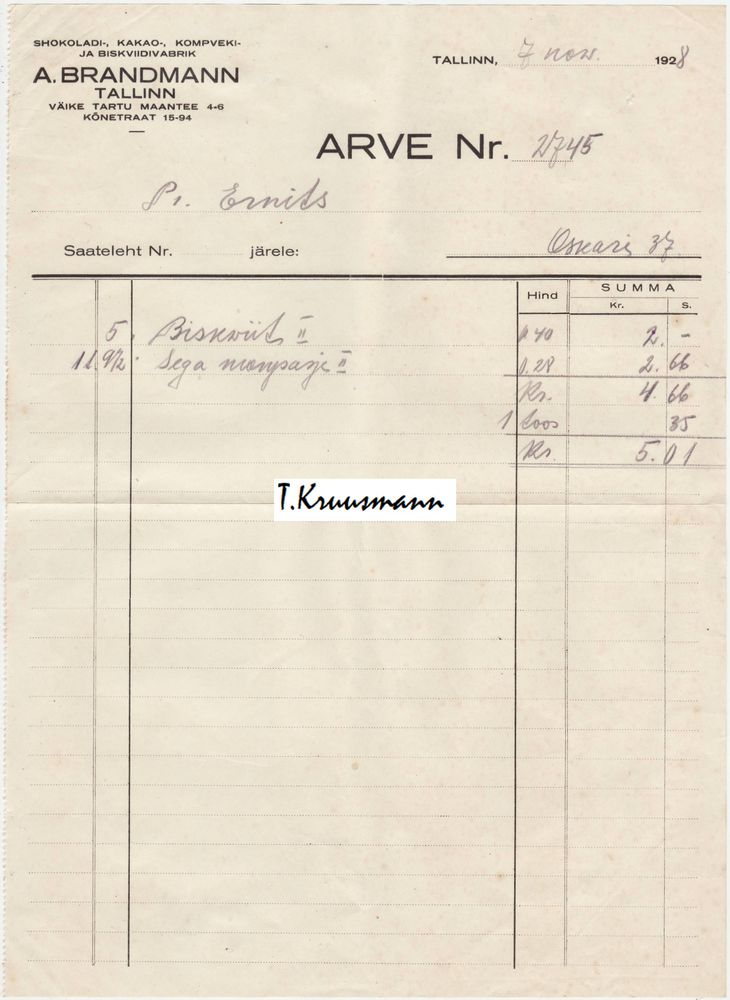 SHOKOLADI-, KAKAO-, KOMPVEKI-
JA BISKVIIDIVABRIK
A. BRANDMANN
TALLINN
VÄIKE TARTU MAANTEE 4-6
KÕNETRAAT 15-94
TALLINN, 7 nov. 1928
ARVE Nr. 2745
Pr. Ernits
Saateleht Nr. järele:
Oskari 37
Hind SUMMA
Kr. S.
5 Biskviit II 0.40 2. -
9 1/2 Sega monpasje II 0.28 2.66
Kr. 4.66
1 toos 35
Kr. 5.01
T.Kruusmann